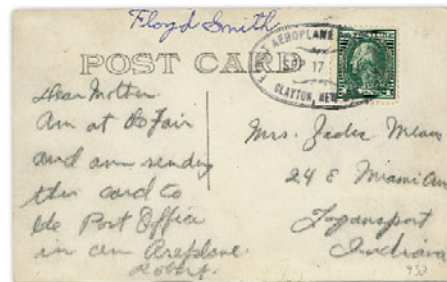 Floyd Smith
POST CARD
AEROPLANE
SEP 17
CLAYTON, NEW
Dear Mother
Am at the Fair
and am sending
this card to
the Post Office
in an Areplane.
Robert.
Mrs. Jades Means
24 E Miami Ave
Logansport
Indiana
933